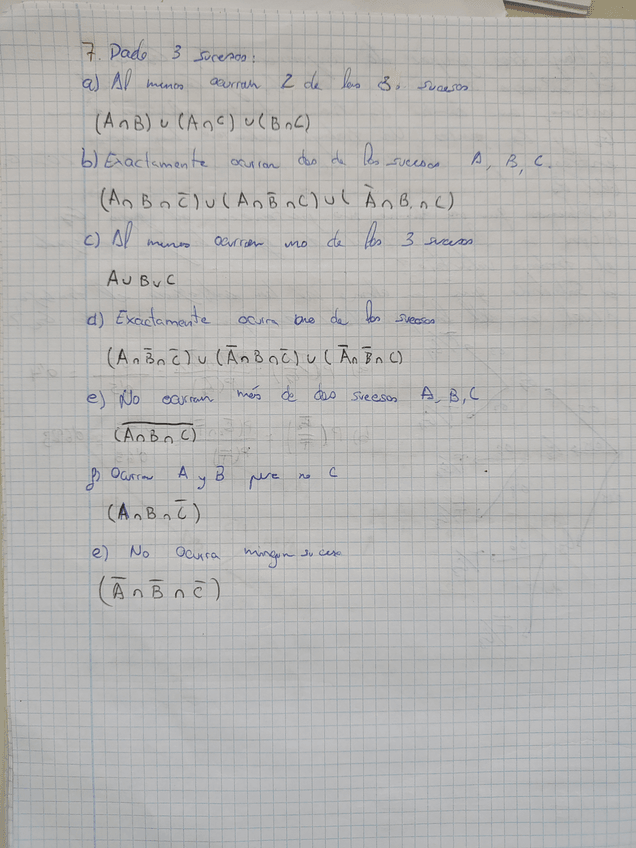 7. Dado 3 sucesos:
a) Al menos ocurran 2 de los 3 sucesos
(A∩B) ∪ (A∩C) ∪ (B∩C)
b) Exactamente ocurran dos de los sucesos A, B, C.
(A∩B∩C̅) ∪ (A∩B̅∩C) ∪ (A̅∩B∩C)
c) Al menos ocurran uno de los 3 sucesos
A∪B∪C
d) Exactamente ocurra uno de los sucesos
(A∩B̅∩C̅) ∪ (A̅∩B∩C̅) ∪ (A̅∩B̅∩C)
e) No ocurran más de dos sucesos A, B, C
(A̅∩̅B̅∩̅C̅)
f) Ocurran A y B pero no C
(A∩B∩C̅)
e) No ocurra ningun suceso
(A̅∩B̅∩C̅)